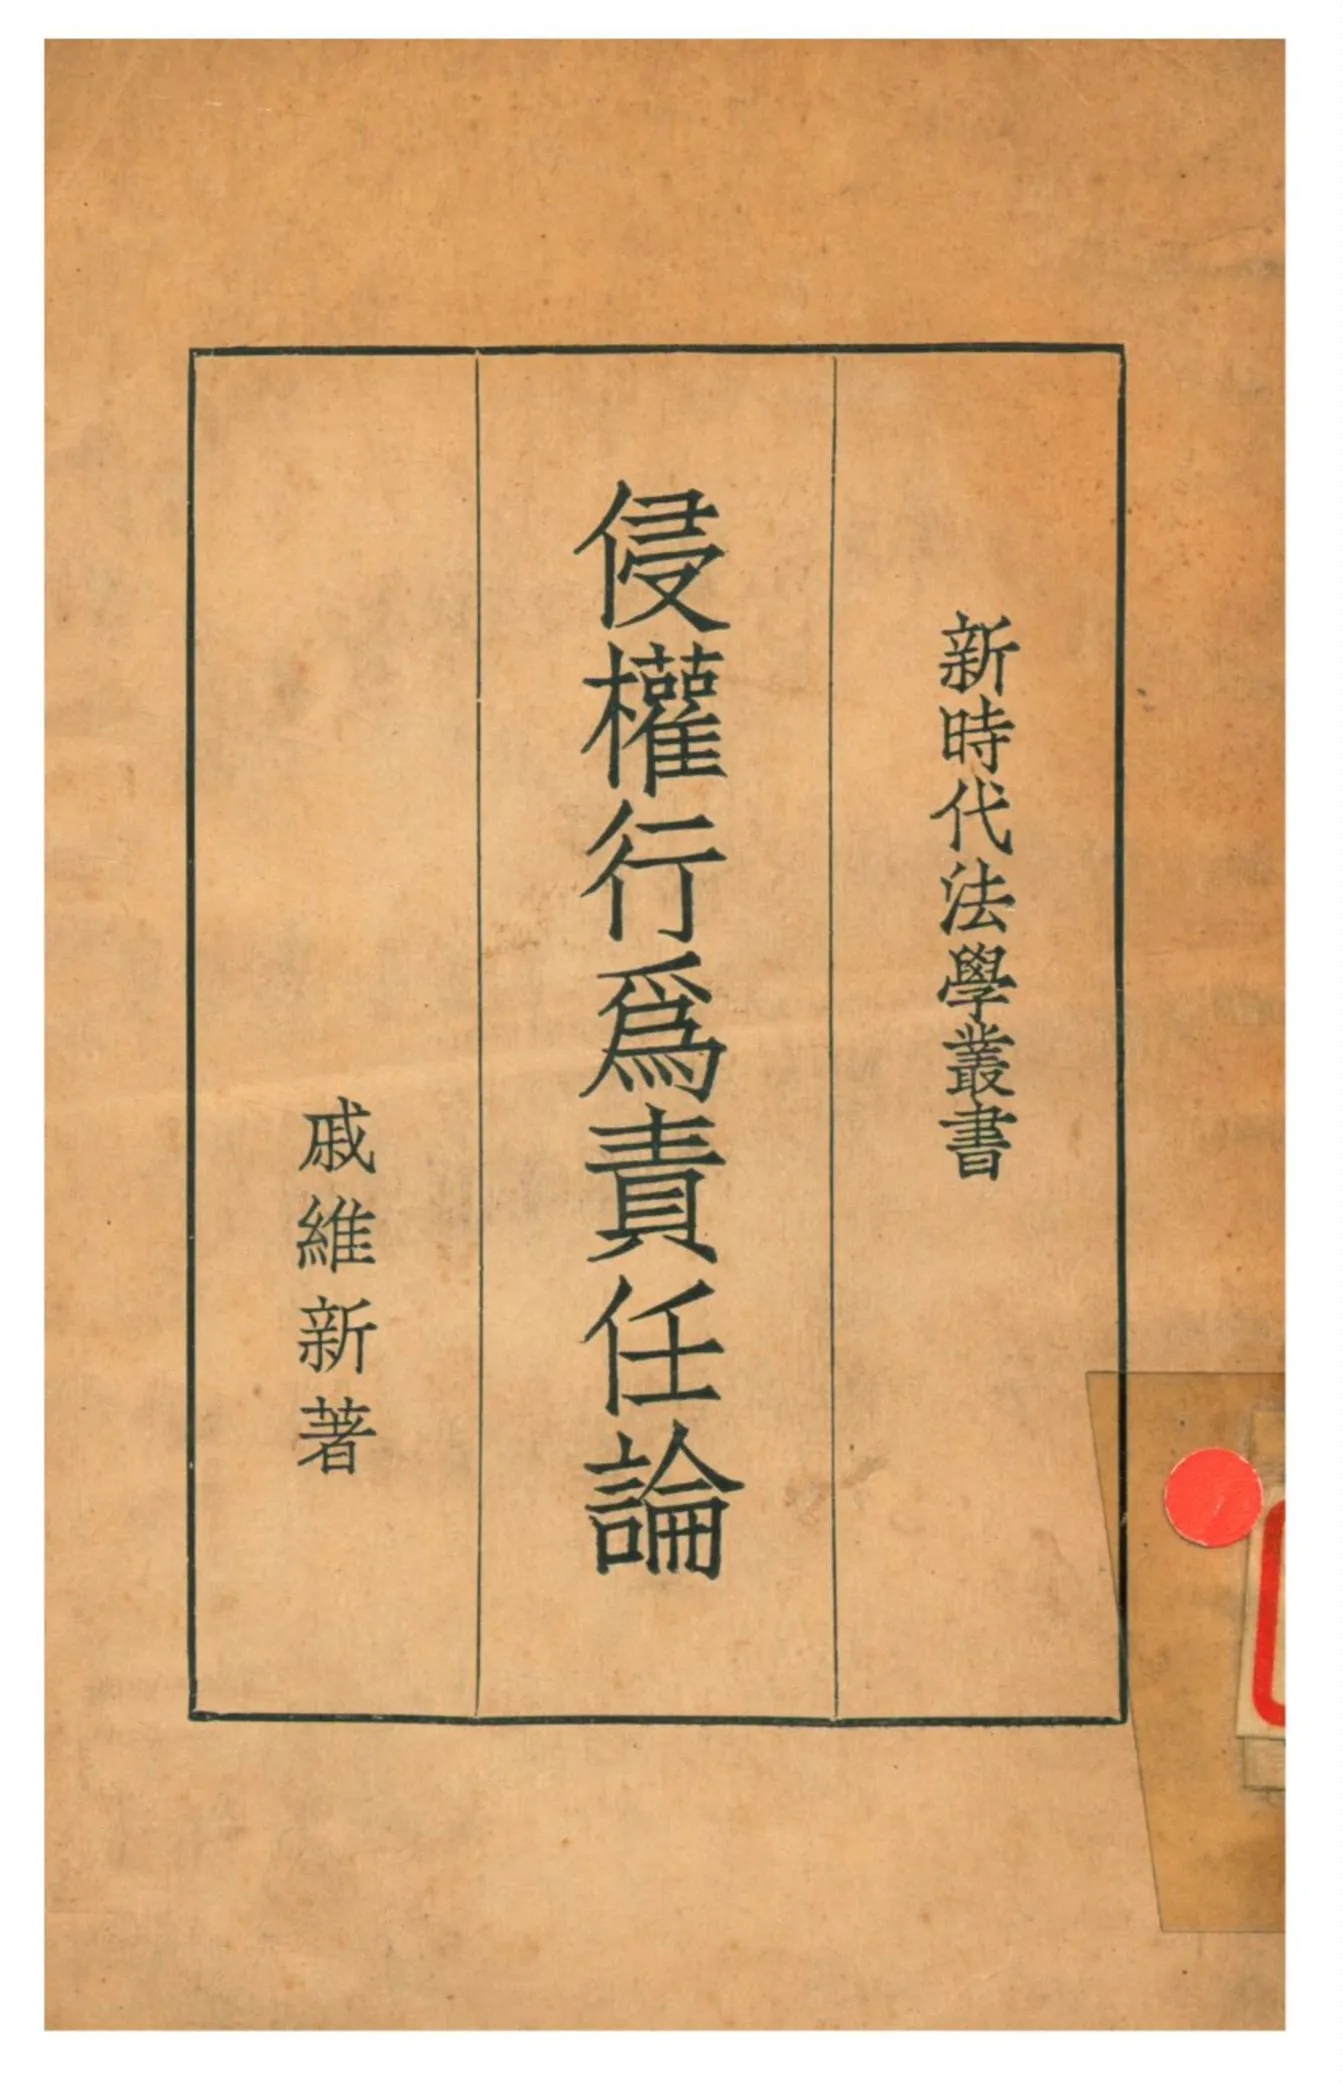 新時代法學叢書
侵權行爲責任論
戚維新著